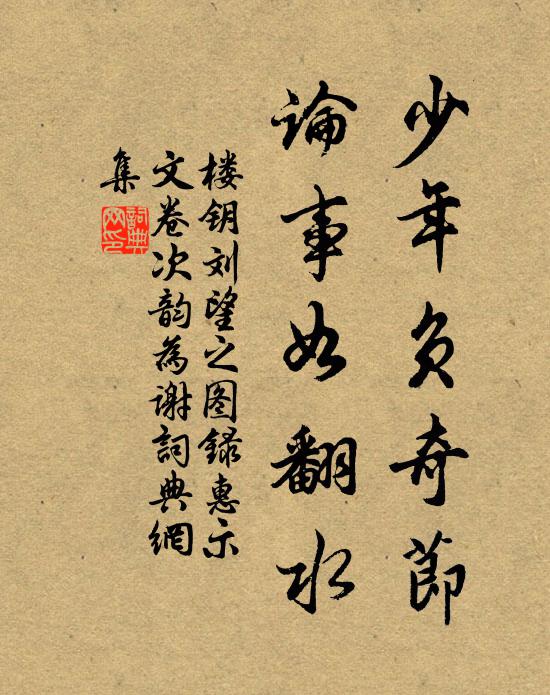 少年负奇節
論事如翻水
楼钥刘望之图録惠示
文卷次韵為谢詞典網
集
詞典网印